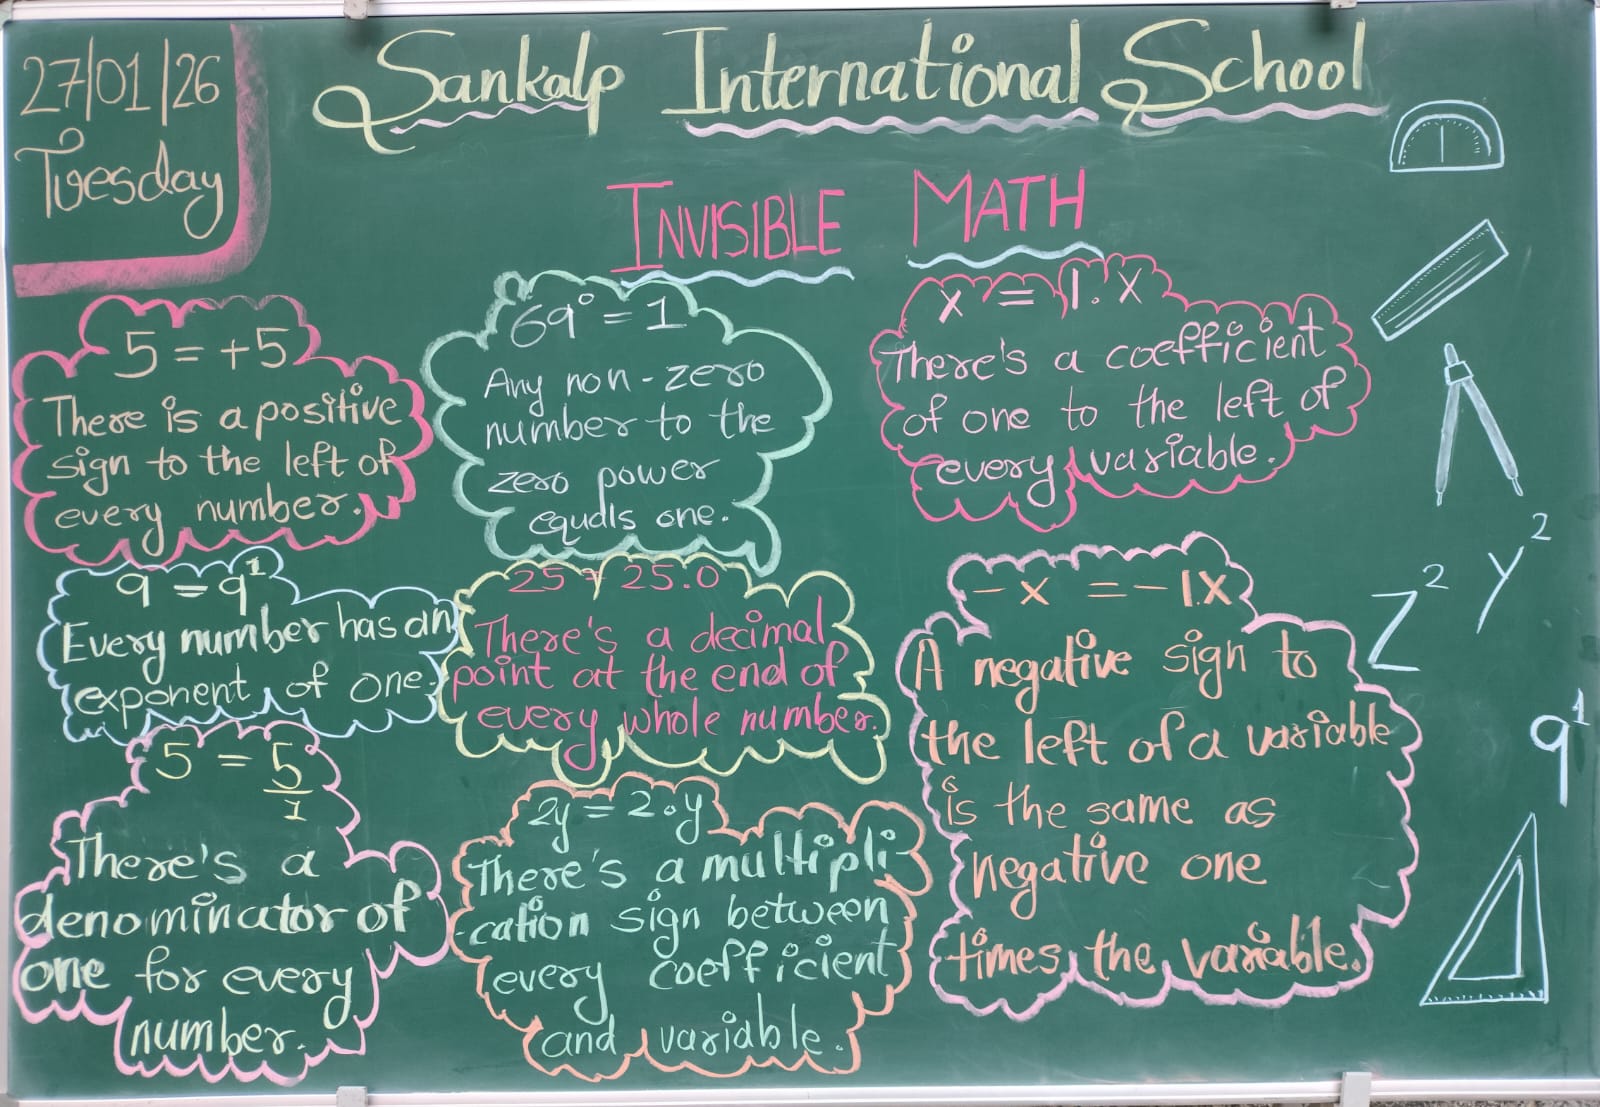 27/01/26
Tuesday
Sankalp International School
INVISIBLE MATH
5 = +5
There is a positive
sign to the left of
every number.
69⁰ = 1
Any non-zero
number to the
zero power
equals one.
x = 1.x
There's a coefficient
of one to the left of
every variable.
9 = 9¹
Every number has an
exponent of one.
25 = 25.0
There's a decimal
point at the end of
every whole number.
-x = -1.x
A negative sign to
the left of a variable
is the same as
negative one
times the variable.
5 = 5/1
There's a
denominator of
one for every
number.
2y = 2•y
There's a multipli
-cation sign between
every coefficient
and variable.
y²
z²
9¹